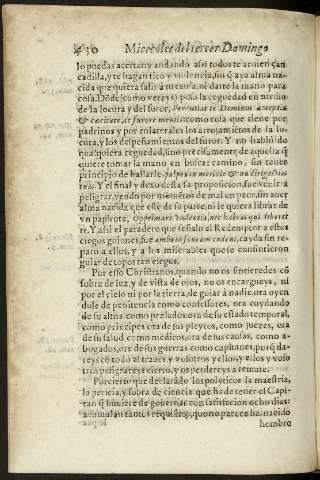 430 Miercoles del tercer Domingo
lo puedas acertar: y andando assi todos te armen çan
cadilla, y te hagan tiro y violencia, sin q̃ aya alma na-
cida que quiera salir a tu causa, ni darte la mano para
cosa. Dõde (como vereys) puso la ceguedad en medio
de la locura y del furor, Percutiat te Dominus amentia
& cæcitate, ac furore mentis: como cosa que tiene por
padrinos y por colaterales los arrojamiẽtos de la lo-
cura, y los despeñamientos del furor. Y no hablò de
qualquiera ceguedad, sino precisamente de aquella q̃
quiere tomar la mano en buscar camino, sin tener
principio de hallarle, palpes in meridie & no dirigas vias
tuas. Y el final y dexo dessa su proposicion, fue venir a
peligrar, yendo por momẽtos de mal en peor, sin auer
alma nacida que este de su parte, ni le quiera librar de
vn papirote, Opprimaris violentia, nec habeas qui liberet
te. Y assi el paradero que señalo el Redemptor a estos
ciegos guiones, fue ambo in foueam cadent, cayda sin re-
paro a ellos, y a los miserables que se consintieron
guiar de topos tan ciegos.
Por esso Christianos, quando no os sintieredes cõ
sobra de luz, y de vista de ojos, no os encargueys, ni
por el cielo ni por la tierra, de guiar à nadie, ora oyen
dole de penitencia como confessores, ora cuydando
de su alma como prelados: ora de su estado temporal,
como principes: ora de sus pleytos, como juezes, ora
de su salud como medicos, ora de sus causas, como a-
bogados, ora de sus guerras como capitanes, porq̃ da-
reys cõ todo al traues, y vosotros y ellos, y ellos y voso
tros peligrareys cierto, y os perdereys a remate.
Por cierto que declarãdo los polyticos la maestria,
la pericia, y sobra de ciencia que ha de tener el Capi-
tan q̃ huuiere de gouernar con satisfacion ocho dias:
acumulan tantos requisitos, que no parece ha nacido
hombro